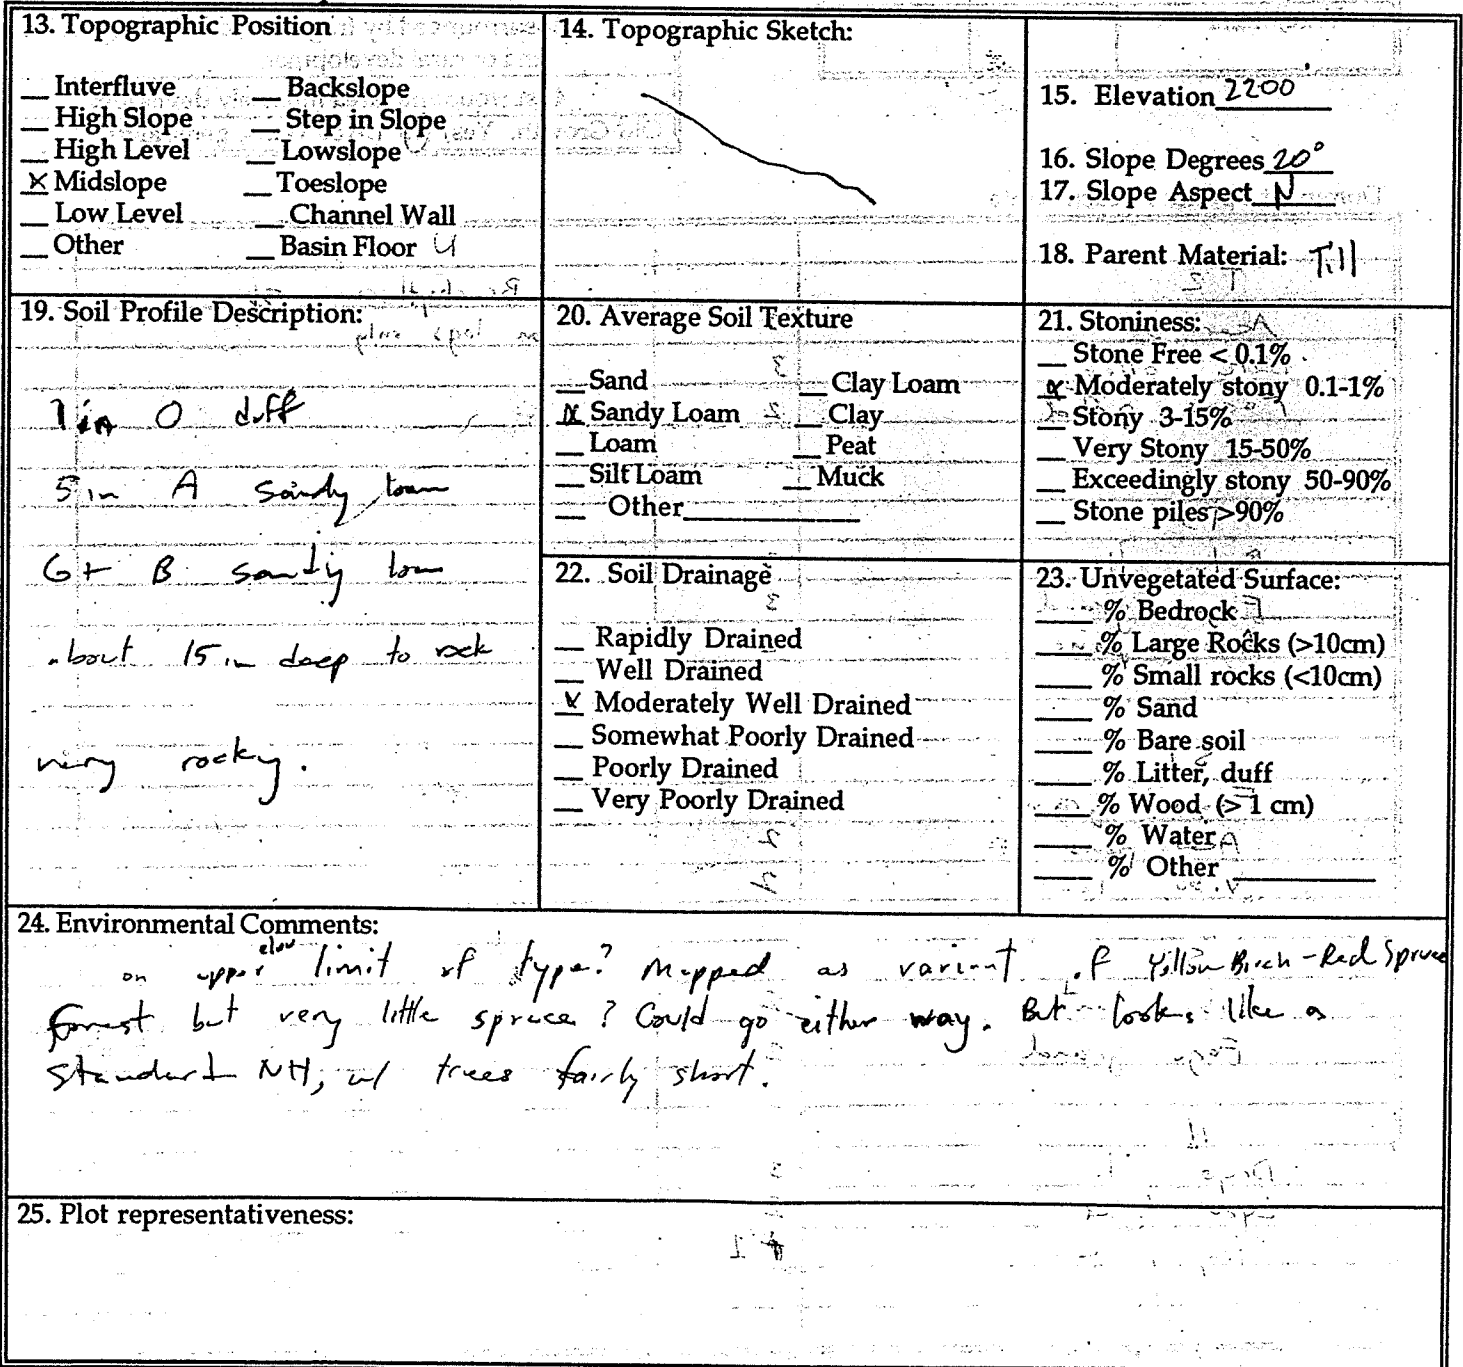 13. Topographic Position
__ Interfluve __ Backslope
__ High Slope __ Step in Slope
__ High Level __ Lowslope
X Midslope __ Toeslope
__ Low Level __ Channel Wall
__ Other __ Basin Floor
14. Topographic Sketch:
15. Elevation 2200
16. Slope Degrees 20°
17. Slope Aspect N
18. Parent Material: Till
19. Soil Profile Description:
1 in O duff
5 in A sandy loam
6+ B sandy loam
about 15 in deep to rock
very rocky.
20. Average Soil Texture
__ Sand __ Clay Loam
X Sandy Loam __ Clay
__ Loam __ Peat
__ Silt Loam __ Muck
__ Other__________
21. Stoniness:
__ Stone Free < 0.1%
X Moderately stony 0.1-1%
__ Stony 3-15%
__ Very Stony 15-50%
__ Exceedingly stony 50-90%
__ Stone piles >90%
22. Soil Drainage
__ Rapidly Drained
__ Well Drained
X Moderately Well Drained
__ Somewhat Poorly Drained
__ Poorly Drained
__ Very Poorly Drained
23. Unvegetated Surface:
____ % Bedrock
____ % Large Rocks (>10cm)
____ % Small rocks (<10cm)
____ % Sand
____ % Bare soil
____ % Litter, duff
____ % Wood (> 1 cm)
____ % Water
____ % Other __________
24. Environmental Comments:
on upper elev limit of type? Mapped as variant of Yellow Birch-Red Spruce
forest but very little spruce? Could go either way. But looks like a
standard NH, w/ trees fairly short.
25. Plot representativeness: